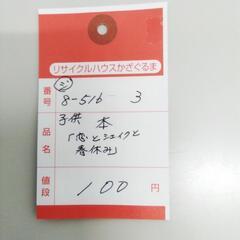 リサイクルハウスかざぐるま
番号 ジ 8-516 3
品名 子供 本
「恋とシェイクと
春休み」
値段 100 円